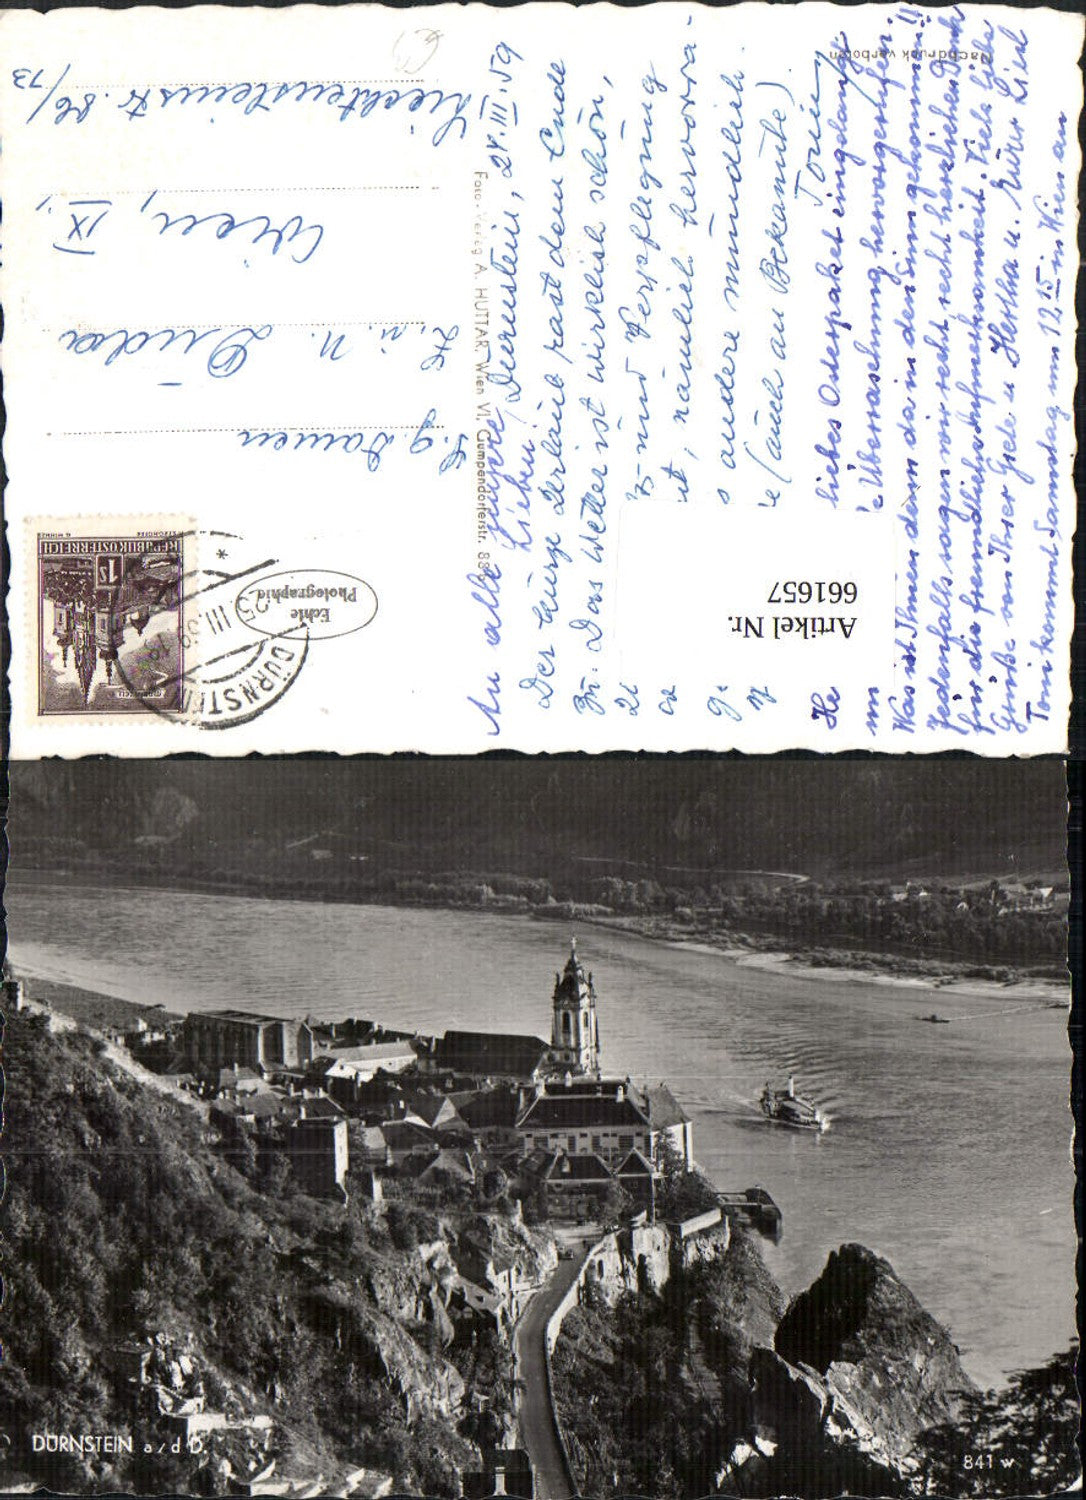 Nachdruck verboten
S. g. Damen
H. u. N. Duda
Wien, IX.,
Liechtensteinstr. 86/
/13
REPUBLIK ÖSTERREICH
1S
25. III. 59
DÜRNSTE
Echte
Photographie
Foto-Verlag A. HUTTAR, Wien VI, Gumpendorferstr. 88
Duernstein, 24. III. 59
An alle unsere Lieben!
Der kurze Urlaub rast dem Ende
zu. Das Wetter ist wirklich schön,
und Verpflegung
nämlich hervorra-
andere mündlich.
(auch an Bekannte)
Toni
liebes Osterpaket eingelangt
Überraschung hervorgerufen!
Was ist Ihnen denn da in den Sinn gekommen!!
Jedenfalls sagen wir recht, recht herzlichen Dank
für die freundliche Aufmerksamkeit. Viele liebe
Grüße von Ihrer Grete u. Hertha u. Eurer Liesl
Toni kommt Samstag um 12,15 in Wien an
Artikel Nr.
661657
DÜRNSTEIN a/d D.
841 w